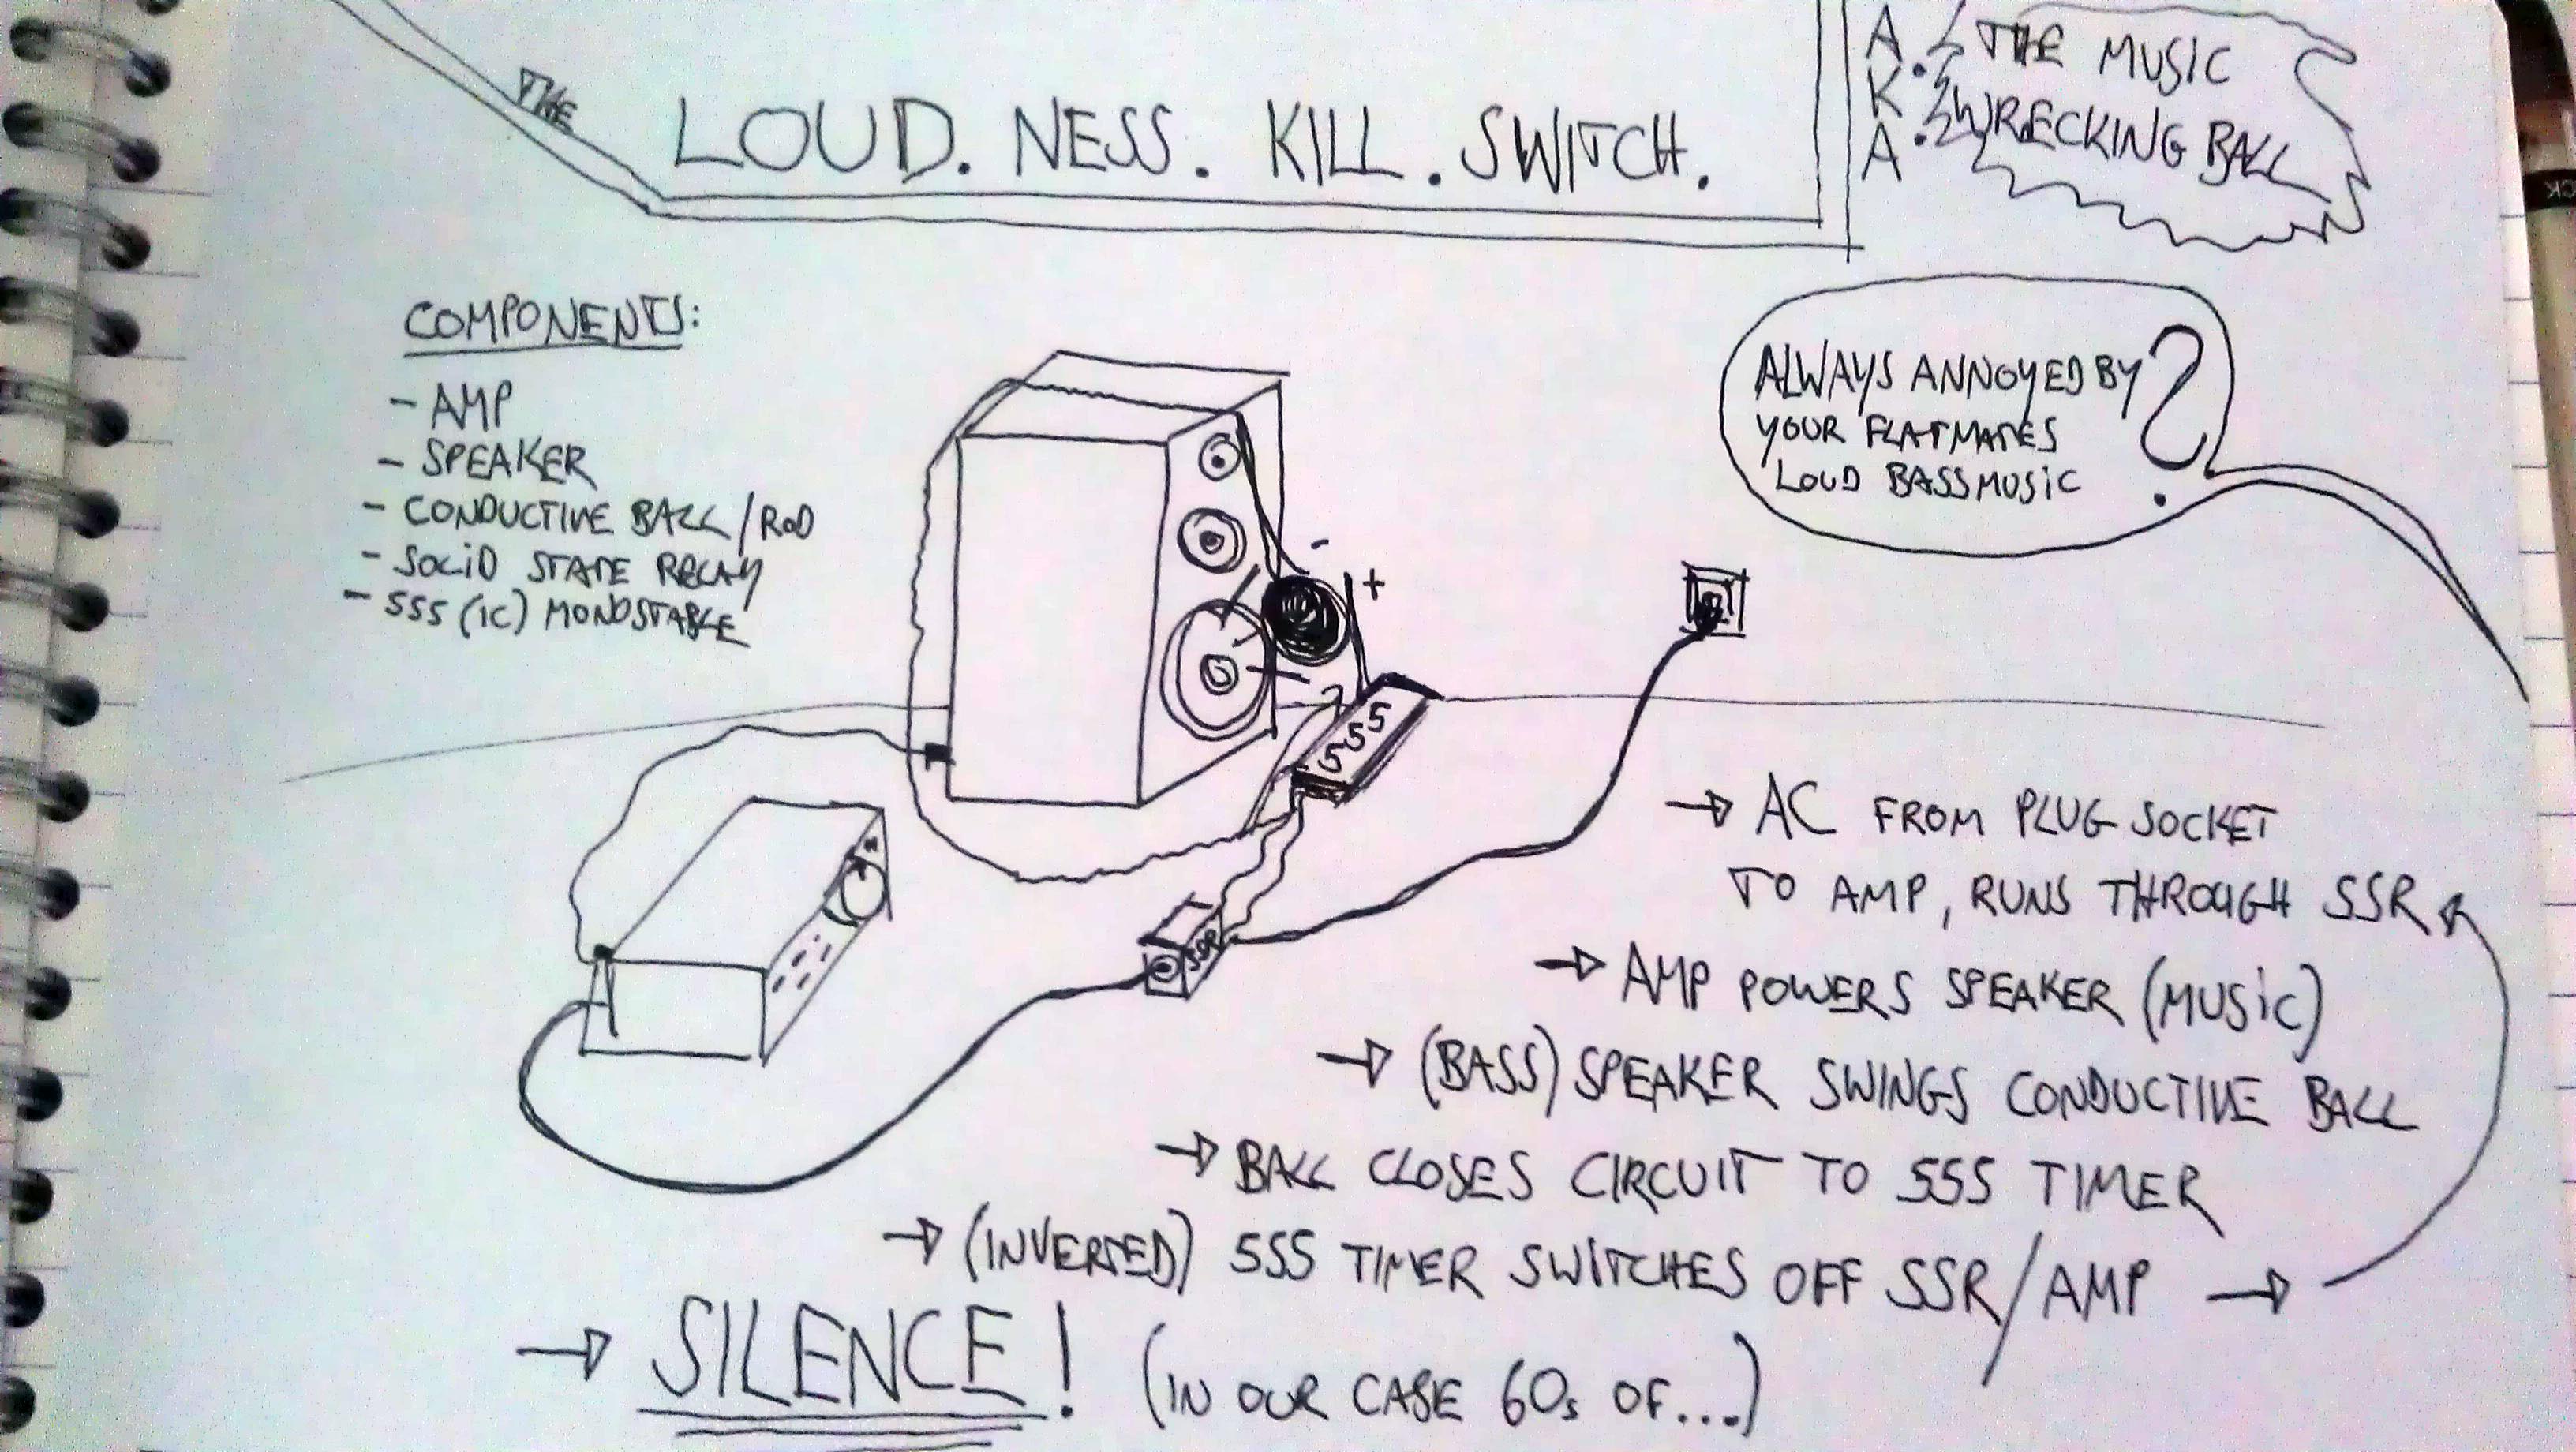 THE
LOUD. NESS. KILL. SWITCH.
A.K.A.
THE MUSIC
WRECKING BALL
COMPONENTS:
- AMP
- SPEAKER
- CONDUCTIVE BALL/ROD
- SOLID STATE RELAY
- 555 (IC) MONOSTABLE
ALWAYS ANNOYED BY
YOUR FLATMATES
LOUD BASSMUSIC ?
- +
555
→ AC FROM PLUG SOCKET
TO AMP, RUNS THROUGH SSR
→ AMP POWERS SPEAKER (MUSIC)
→ (BASS) SPEAKER SWINGS CONDUCTIVE BALL
→ BALL CLOSES CIRCUIT TO 555 TIMER
→ (INVERTED) 555 TIMER SWITCHES OFF SSR/AMP →
→ SILENCE! (IN OUR CASE 60s OF...)